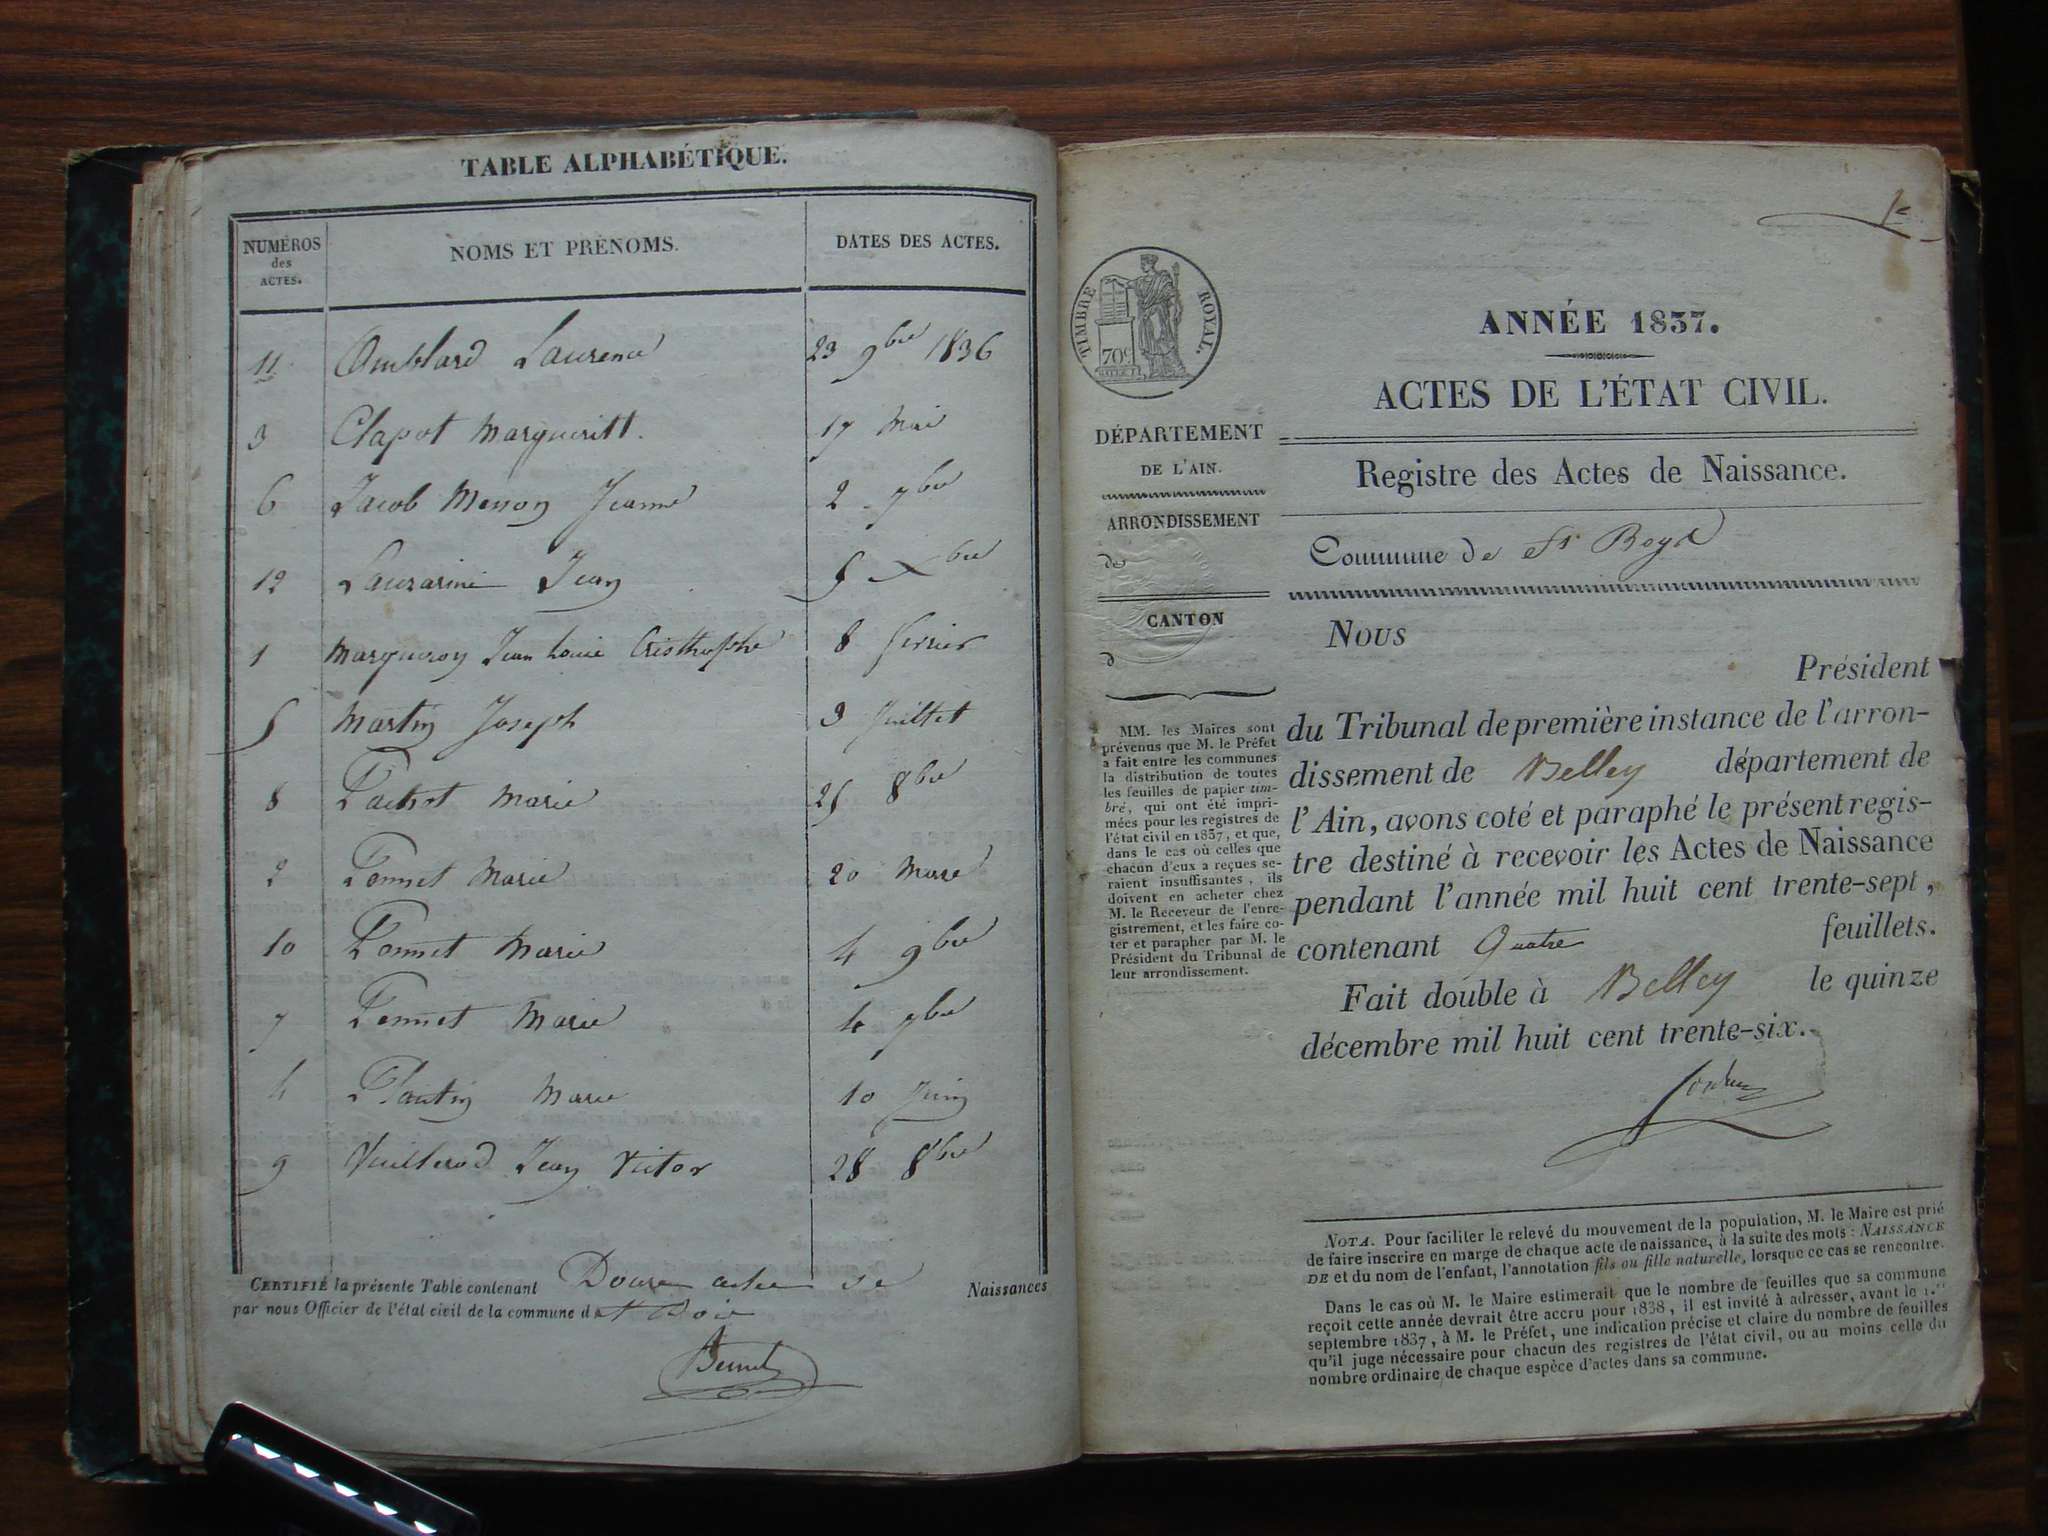 TABLE ALPHABÉTIQUE.
NUMÉROS des ACTES. NOMS ET PRÉNOMS. DATES DES ACTES.
11 Amblard Laurence 23 9bre 1836
3 Clapot Margueritt. 17 Mai
6 Jacob Jeanne 2 7bre
12 Jean 5 Xbre
1 Margueron Jean Louis Cristhophe 8 fevrier
5 Martin Joseph 3 Juillet
8 Marie 25 8bre
2 Marie 20 Mars
10 Marie 4 9bre
7 Marie 4 7bre
4 Plantin Marie 10 Juin
9 Vuillerod Jean Victor 28 8bre
CERTIFIÉ la présente Table contenant Douze actes de Naissances
par nous Officier de l'état civil de la commune d St Boi
1e
TIMBRE ROYAL.
70c
ANNÉE 1837.
ACTES DE L'ÉTAT CIVIL.
DÉPARTEMENT
DE L'AIN.
ARRONDISSEMENT
de
CANTON
d
MM. les Maires sont
prévenus que M. le Préfet
a fait entre les communes
la distribution de toutes
les feuilles de papier tim-
bré, qui ont été impri-
mées pour les registres de
l'état civil en 1837, et que,
dans le cas où celles que
chacun d'eux a reçues se-
raient insuffisantes, ils
doivent en acheter chez
M. le Receveur de l'enre-
gistrement, et les faire co-
ter et parapher par M. le
Président du Tribunal de
leur arrondissement.
Registre des Actes de Naissance.
Commune de St Boyd
NOUS
Président
du Tribunal de première instance de l'arron-
dissement de Belley département de
l'Ain, avons coté et paraphé le présent regis-
tre destiné à recevoir les Actes de Naissance
pendant l'année mil huit cent trente-sept,
contenant Quatre feuillets.
Fait double à Belley le quinze
décembre mil huit cent trente-six.
NOTA. Pour faciliter le relevé du mouvement de la population, M. le Maire est prié
de faire inscrire en marge de chaque acte de naissance, à la suite des mots : NAISSANCE
DE et du nom de l'enfant, l'annotation fils ou fille naturelle, lorsque ce cas se rencontre.
Dans le cas où M. le Maire estimerait que le nombre de feuilles que sa commune
reçoit cette année devrait être accru pour 1838, il est invité à adresser, avant le 1.er
septembre 1837, à M. le Préfet, une indication précise et claire du nombre de feuilles
qu'il juge nécessaire pour chacun des registres de l'état civil, ou au moins celle du
nombre ordinaire de chaque espèce d'actes dans sa commune.